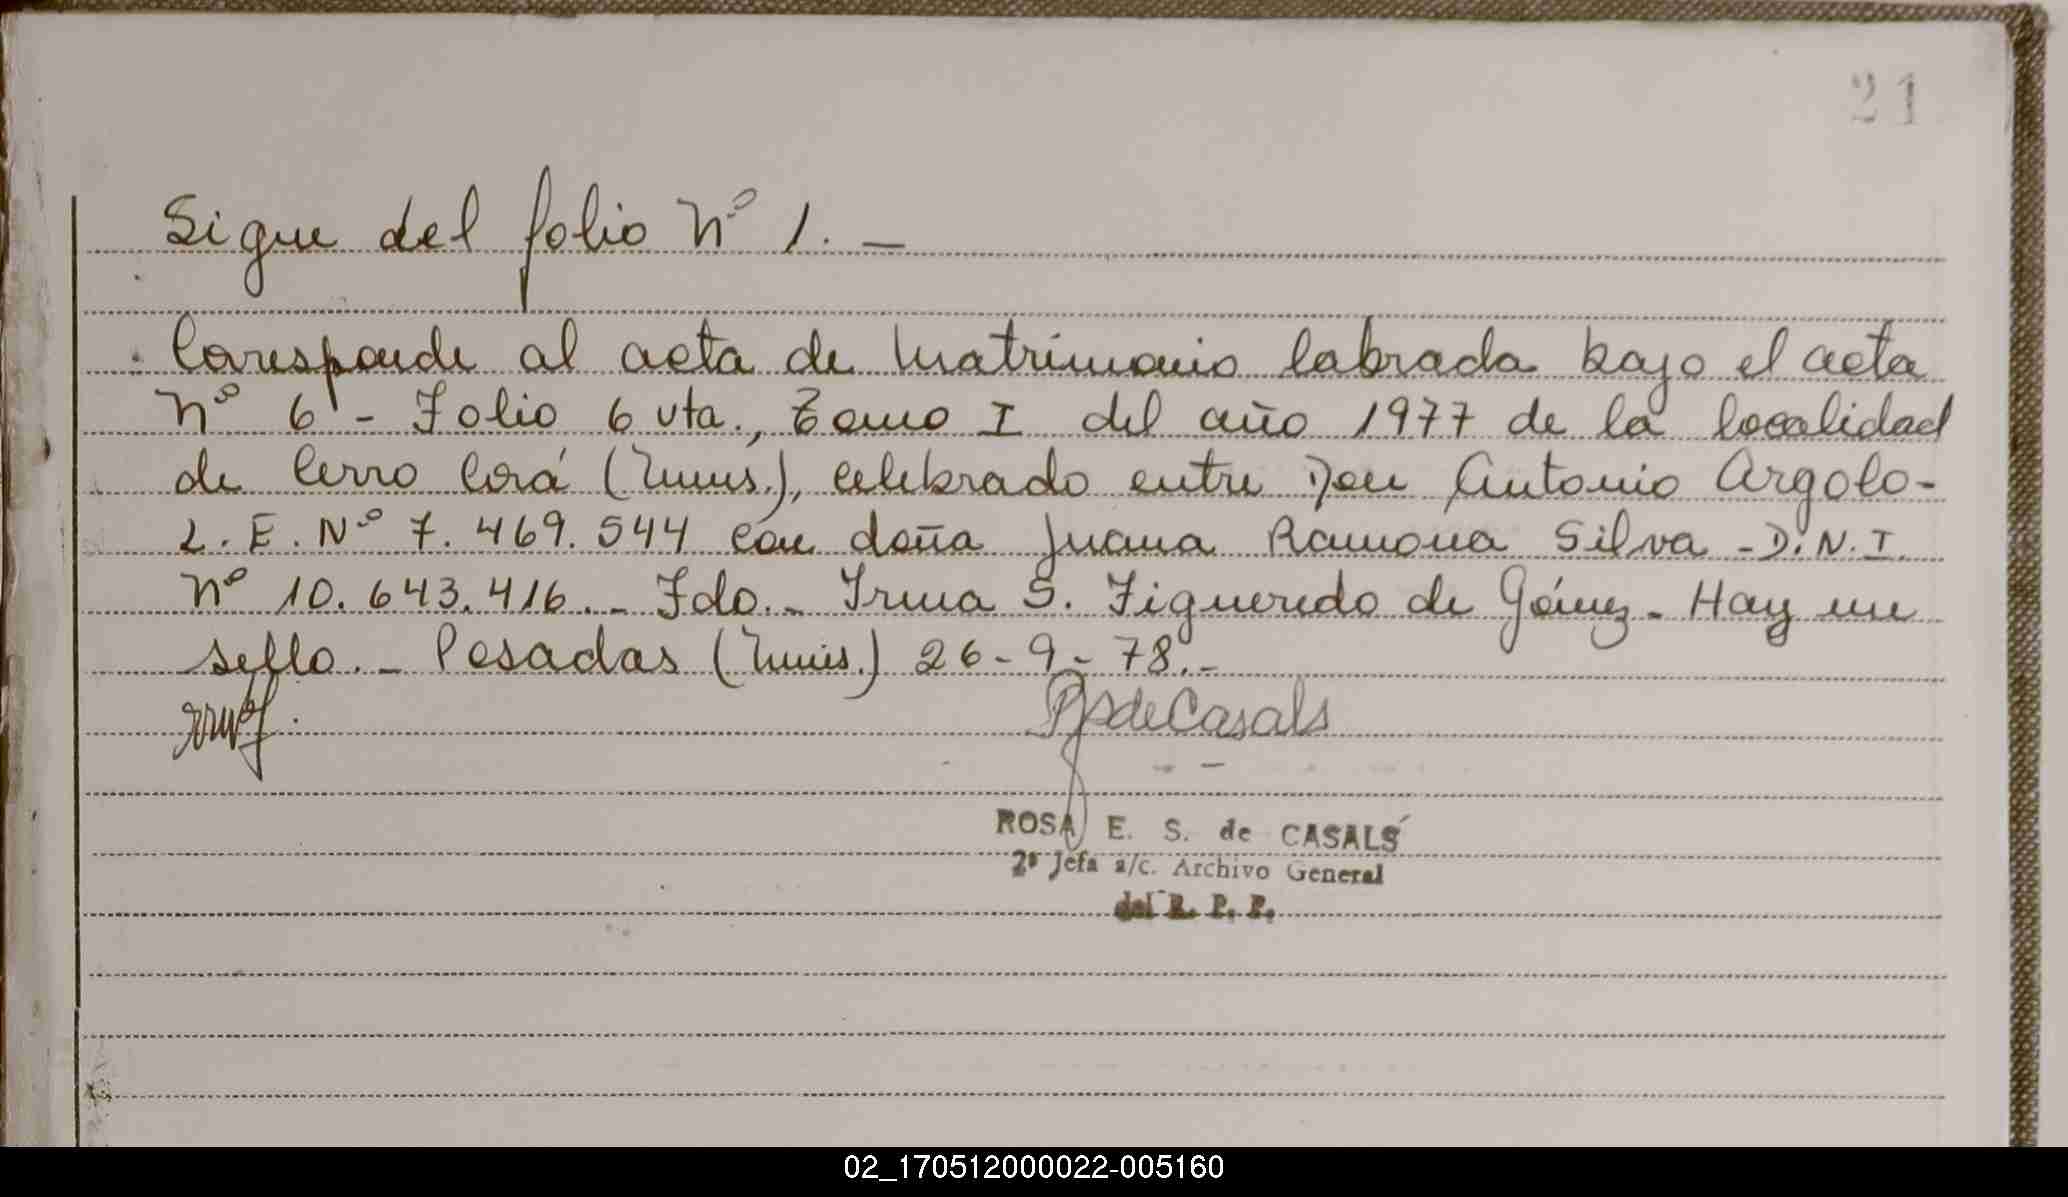 21
Sigue del folio Nº 1. —
Corresponde al acta de Matrimonio labrada bajo el acta
Nº 6 - Folio 6 vta., Tomo I del año 1977 de la localidad
de Cerro Corá (Mnes.), celebrado entre Don Antonio Argolo-
L. E. Nº 7.469.544 con doña Juana Ramona Silva - D.N.I.
Nº 10.643.416. - Fdo. - Irma S. Figueredo de Gómez - Hay un
sello. - Posadas (Mnes.) 26-9-78. -
de Casals
ROSA E. S. de CASALS
2ª Jefa a/c. Archivo General
del R. P. P.
02_170512000022-005160